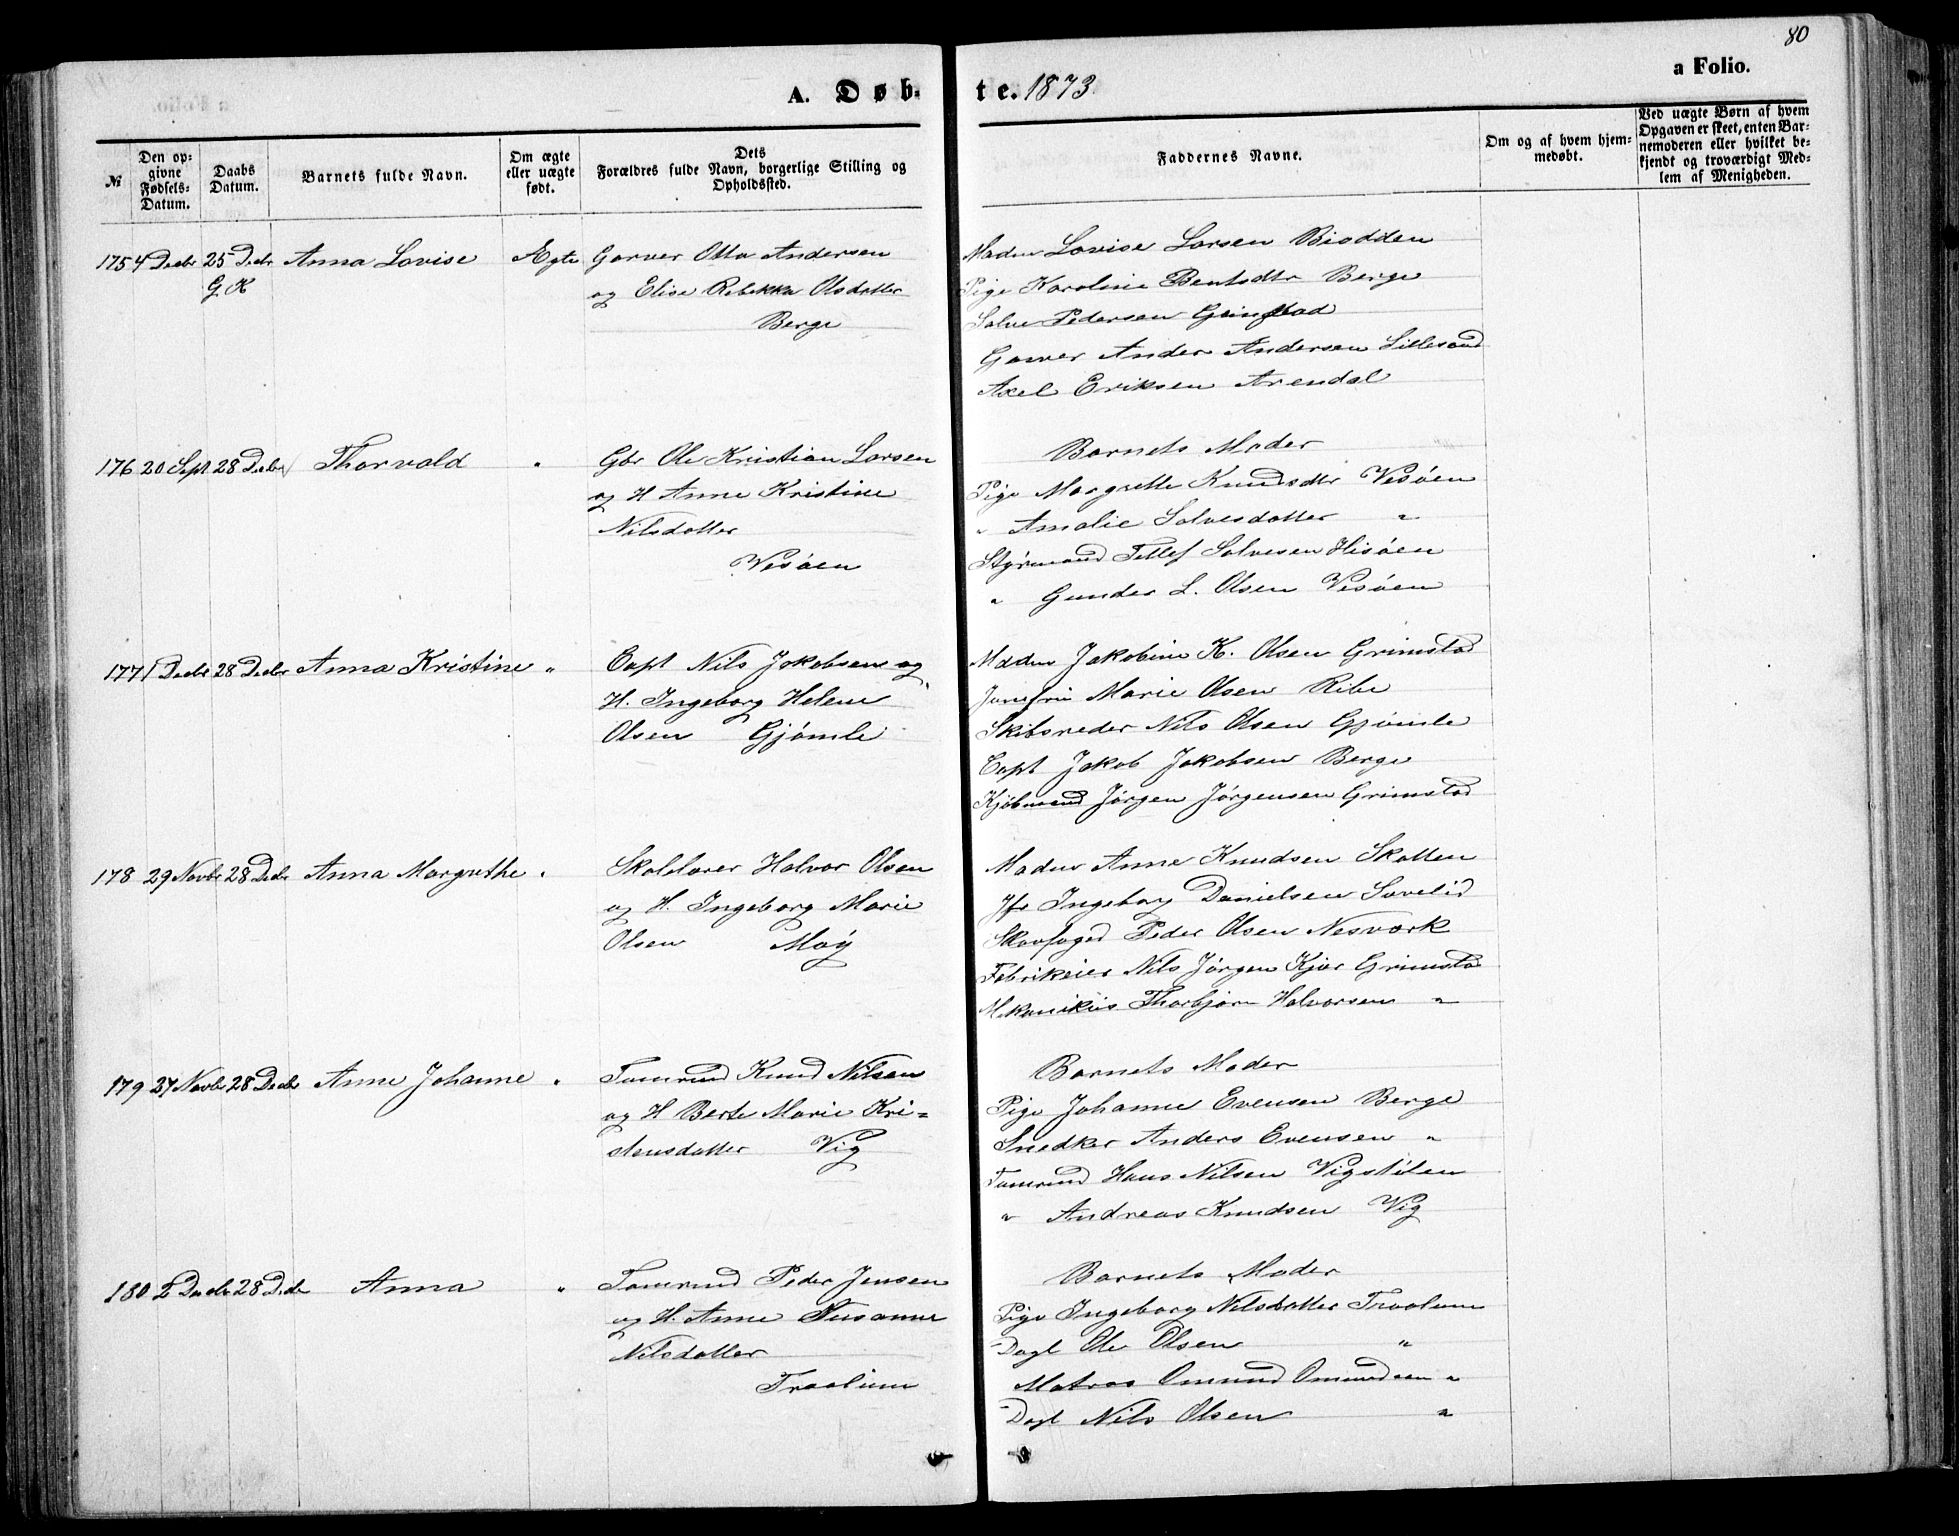 80
a Folio.
A. Døb-te. 1873.
№
Den opgivne Fødsels-Datum.
Daabs Datum.
Barnets fulde Navn.
Om ægte eller uægte født.
Dets Forældres fulde Navn, borgerlige Stilling og Opholdssted.
Faddernes Navne.
Om og af hvem hjemmedøbt.
Ved uægte Børn af hvem Opgaven er skeet, enten Barnemoderen eller hvilket bekjendt og troværdigt Medlem af Menigheden.
175 4 Decbr 25 Decbr Anna Lovise Ægte Garver Otto Andersen
G. K og Elise Rebekka Olsdatter
Berge
Madm Lovise Larsen Biodden
Pige Karoline Bentsdtr Berge
Salve Pedersen Grimstad
Garver Ander Andersen Lillesand
Axel Eriksen Arendal
176 20 Sept 28 Decbr Thorvald " Gbr Ole Kristian Larsen
og H Anne Kristine
Nilsdatter
Vesøen
Barnets Moder
Pige Margrethe Knudsdtr Vesøen
" Amalie Salvesdatter "
Styrmand Tellef Salvesen Hisøen
" Gunder L. Olsen Vesøen
177 1 Decbr 28 Decbr Anna Kristine " Capt Nils Jakobsen og
H. Ingeborg Helene
Olsen Gjømle
Madm Jakobine K. Olsen Grimstad
Jomfru Marie Olsen Ribe
Skibsreder Nils Olsen Gjømle
Capt Jakob Jakobsen Berge
Kjøbmand Jørgen Jørgensen Grimstad
178 29 Novbr 28 Decbr Anna Margrethe " Skolelærer Halvor Olsen
og H. Ingeborg Marie
Olsen Moy
Madm Anne Knudsen Skatten
Jfr Ingeborg Danielsen Savelid
Skovfoged Peder Olsen Nesværk
Fabrikeier Nils Jørgen Kjær Grimstad
Mekanikus Thorbjørn Halvorsen "
179 27 Novbr 28 Decbr Anne Johanne " Tømrmd Knud Nilsen
og H Berte Marie Kri=
stensdatter Vig
Barnets Moder
Pige Johanne Evensen Berge
Snedker Anders Evensen "
Tømrmd Hans Nilsen Vigstølen
" Andreas Knudsen Vig
180 2 Decbr 28 Decbr Anna " Tømrmd Peder Jensen
og H. Anne Susanne
Nilsdatter
Traalum
Barnets Moder
Pige Ingeborg Nilsdatter Traalum
Dagl Ole Olsen "
Matros Omund Omundsen "
Dagl Nils Olsen "